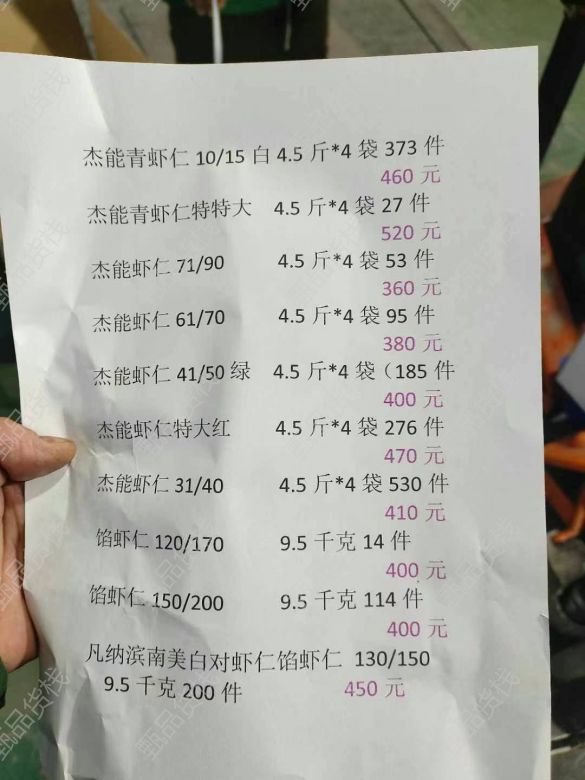 杰能青虾仁 10/15 白 4.5 斤*4 袋 373 件
460 元
杰能青虾仁特特大 4.5 斤*4 袋 27 件
520 元
杰能虾仁 71/90 4.5 斤*4 袋 53 件
360 元
杰能虾仁 61/70 4.5 斤*4 袋 95 件
380 元
杰能虾仁 41/50 绿 4.5 斤*4 袋（185 件
400 元
杰能虾仁特大红 4.5 斤*4 袋 276 件
470 元
杰能虾仁 31/40 4.5 斤*4 袋 530 件
410 元
馅虾仁 120/170 9.5 千克 14 件
400 元
馅虾仁 150/200 9.5 千克 114 件
400 元
凡纳滨南美白对虾仁馅虾仁 130/150
9.5 千克 200 件 450 元
甄品货栈